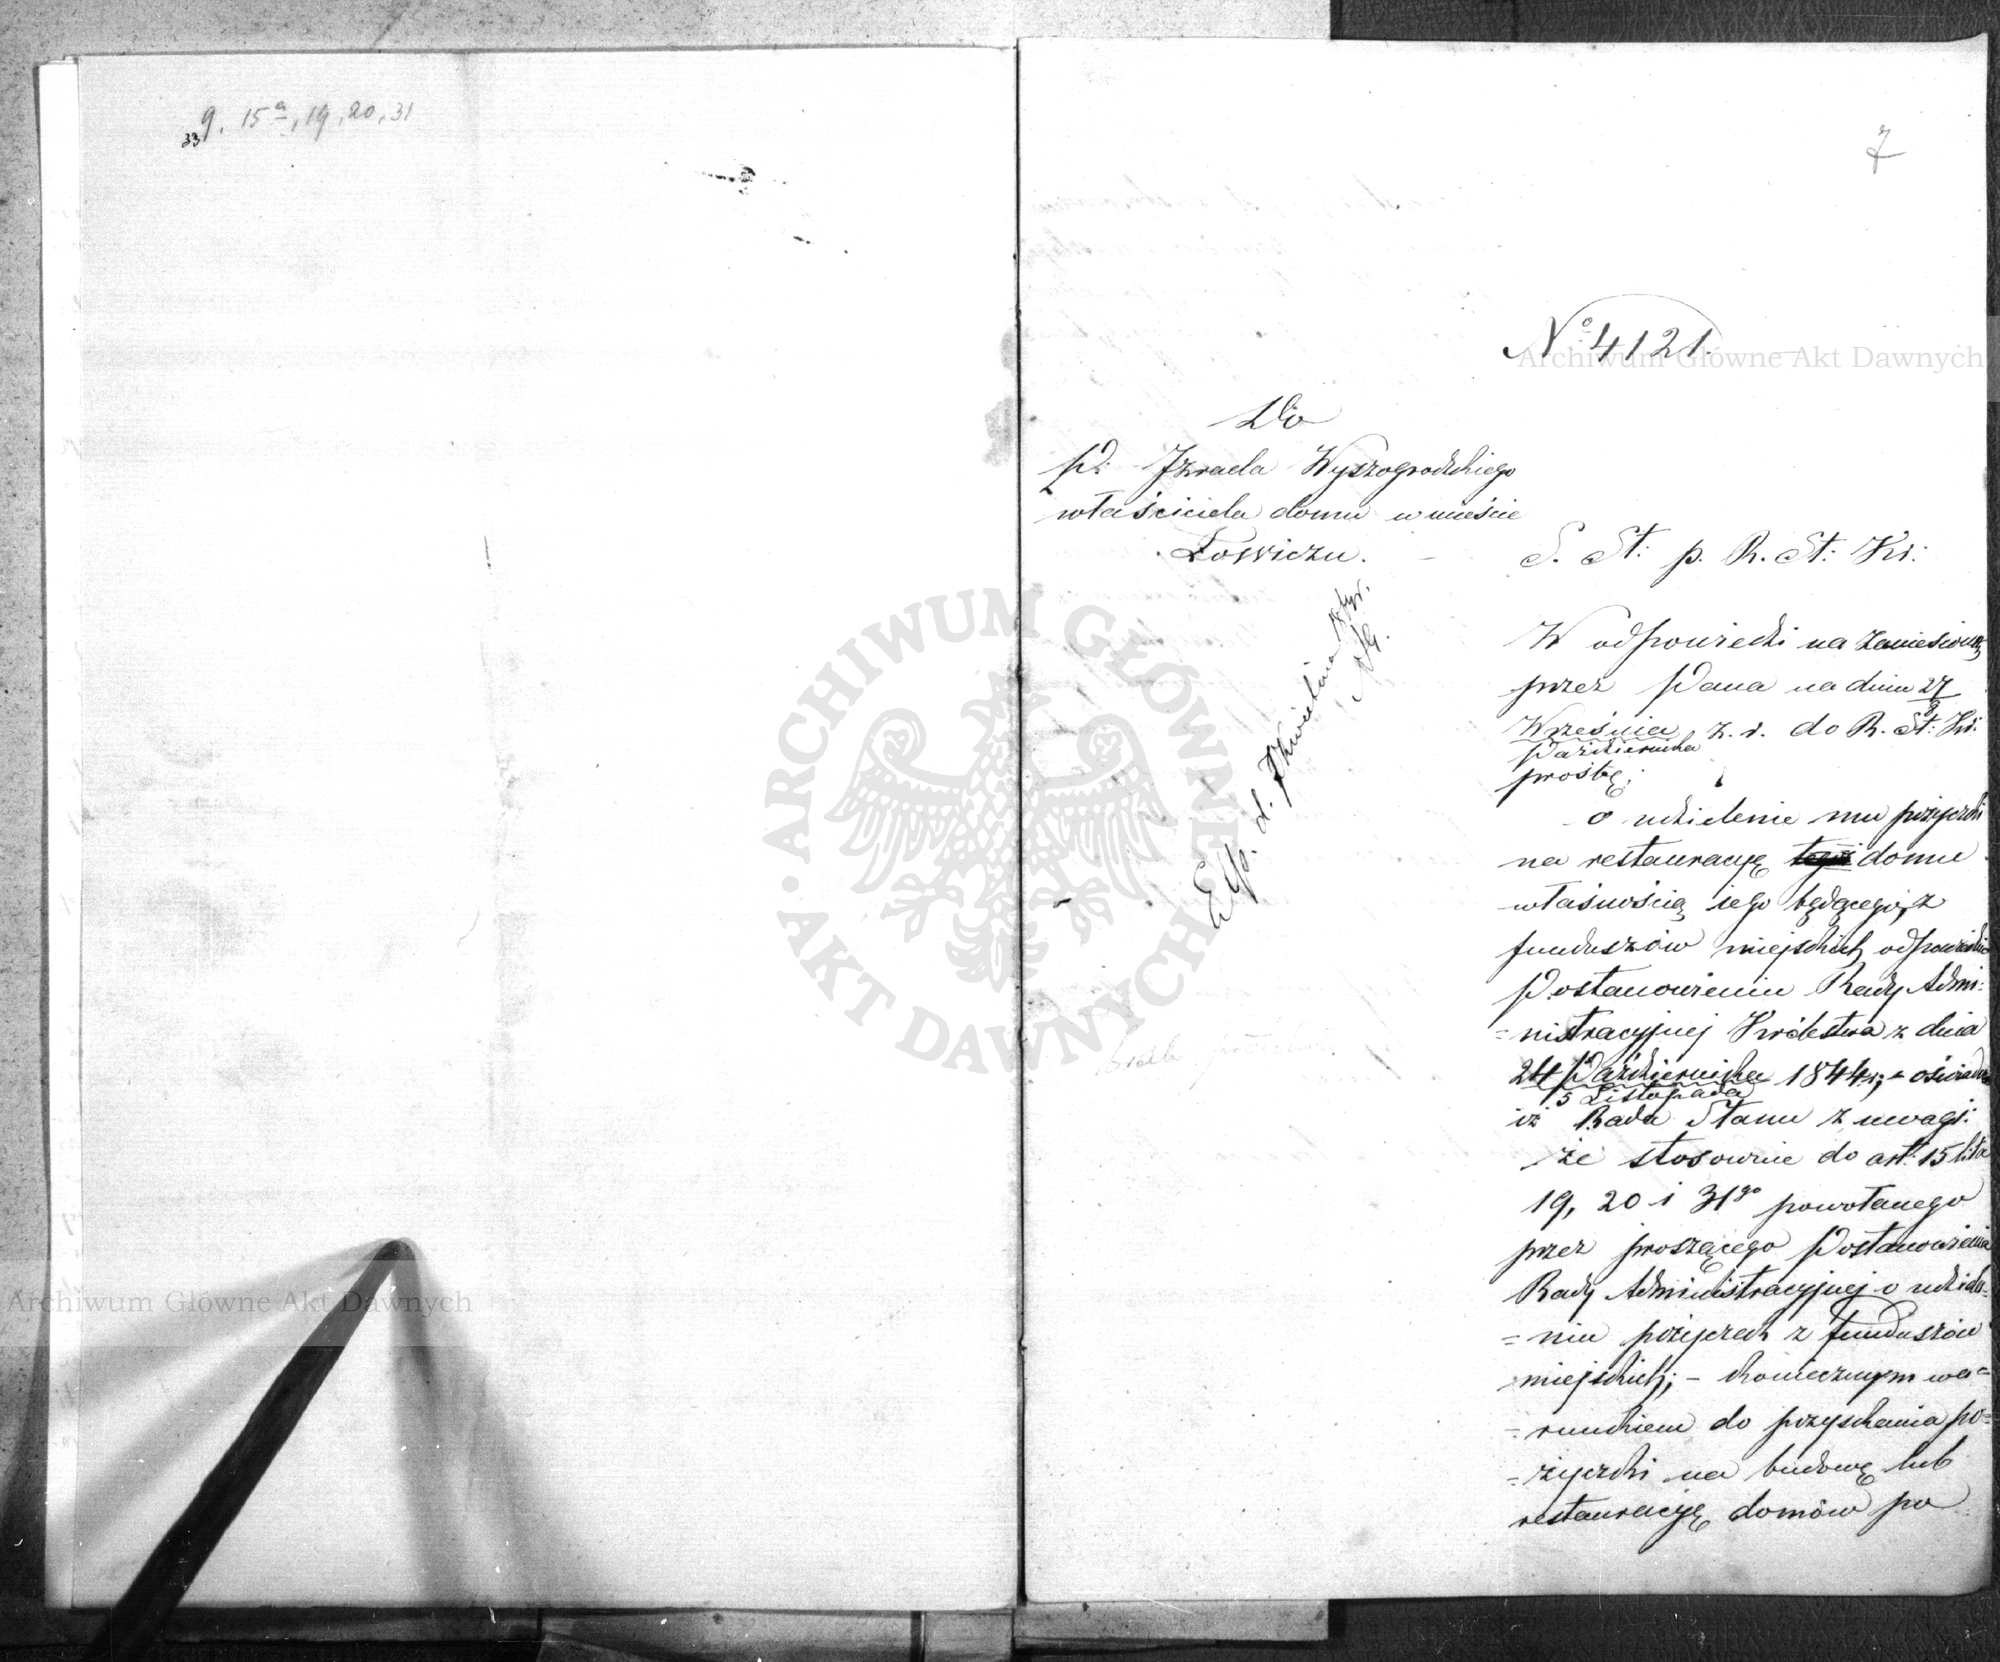 9. 15a, 19, 20, 31
33
7
No 4121.
Archiwum Główne Akt Dawnych
Do
P. Izraela Wyszogrodzkiego
właściciela domu w mieście
Łowiczu.
S. St: p. R. St: Kr:
W odpowiedzi na zaniesioną
przez Pana na dniu 27/9
Września r. z. do R. St: Kr:
Października
prośbę:
o udzielenie mu pożyczki
na restauracyę domu
własnością iego będącego, z
funduszów miejskich odpowiednio
Postanowieniu Rady Admi-
=nistracyjnej Królestwa z dnia
24 Października 1844 r; - oświadcza
5 Listopada
iż Rada Stanu z uwagi:
że stosownie do art: 15 lit a
19, 20 i 31go powołanego
przez proszącego Postanowienia
Rady Administracyjnej o udziele-
=niu pożyczek z funduszów
miejskich; - koniecznym wa=
=runkiem do pozyskania po=
=życzki na budowę lub
restauracyę domów po
Exp. d.
ARCHIWUM GŁÓWNE AKT DAWNYCH
Archiwum Główne Akt Dawnych